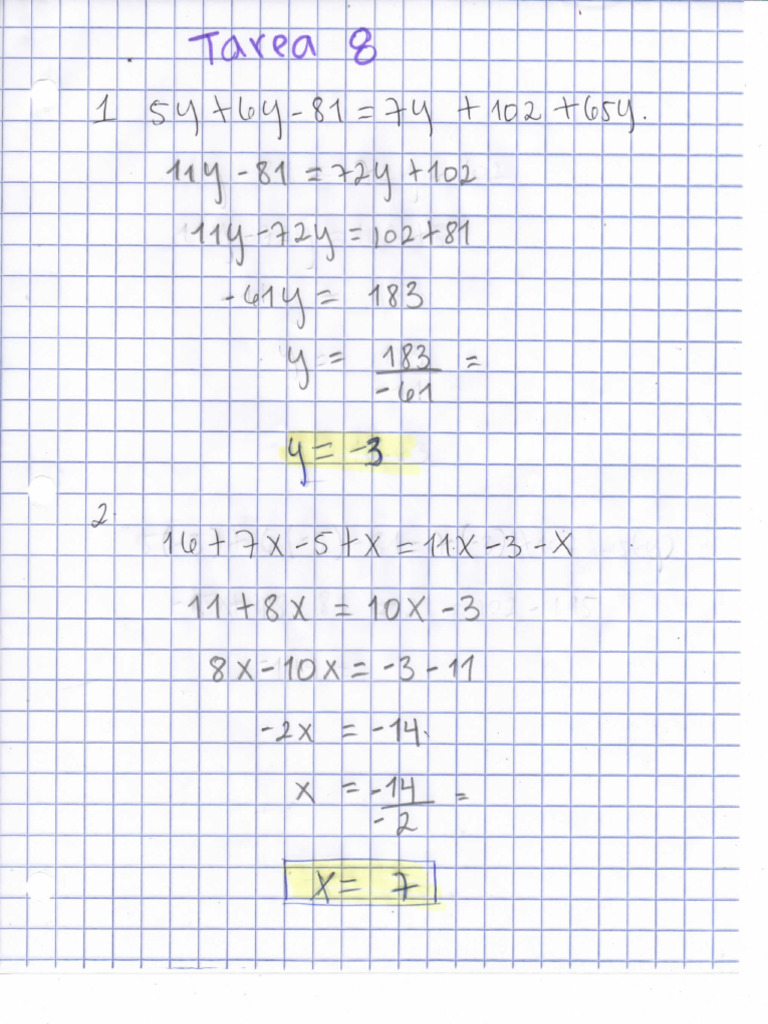 Tarea 8
1 5y+6y-81=7y +102 +65y.
11y-81 =72y+102
11y-72y=102+81
-61y= 183
y = 183/-61 =
y= -3
2.
16+7x-5+x=11x-3-x
11+8x = 10x -3
8x-10x= -3-11
-2x = -14.
x = -14/-2 =
x= 7